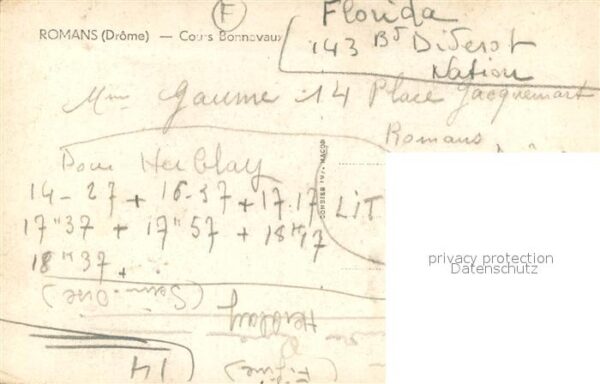 F
Florida
ROMANS (Drôme) — Cours Bonnevaux
143 Bd Diderot
Nation
Mme Gaume 14 Place Jacquemart
Romans
Pour Herblay
14-27 + 16-37 + 17.17
LIT
17"37 + 17"57 + 18H17
18H37 +
COMBIER IMP. MACON
privacy protection
Datenschutz
(Seine-Oise)
Herblay
14